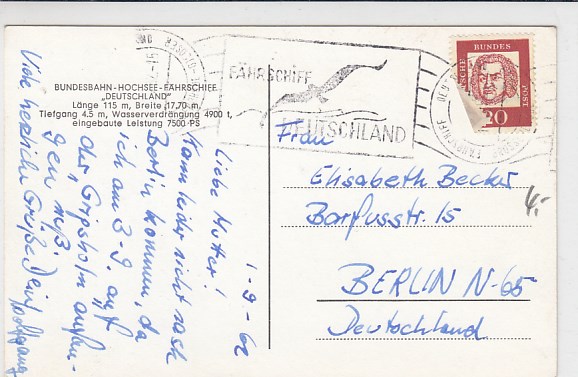 BUNDESBAHN-HOCHSEE-FÄHRSCHIFF
„DEUTSCHLAND"
Länge 115 m, Breite 17,70 m,
Tiefgang 4,5 m, Wasserverdrängung 4900 t,
eingebaute Leistung 7500 PS
FÄHRSCHIFF
DEUTSCHLAND
DEUTSCHE BUNDESPOST
20
1-9-62
Liebe Mutter!
Kann leider nicht nach
Berlin kommen, da
ich am 3-9. auf
der „Gripsholm" anfan-
gen muß.
Viele herzliche Grüße Dein
Wolfgang
Frau
Elisabeth Becker
Barfusstr. 15
BERLIN N-65
Deutschland
4,-